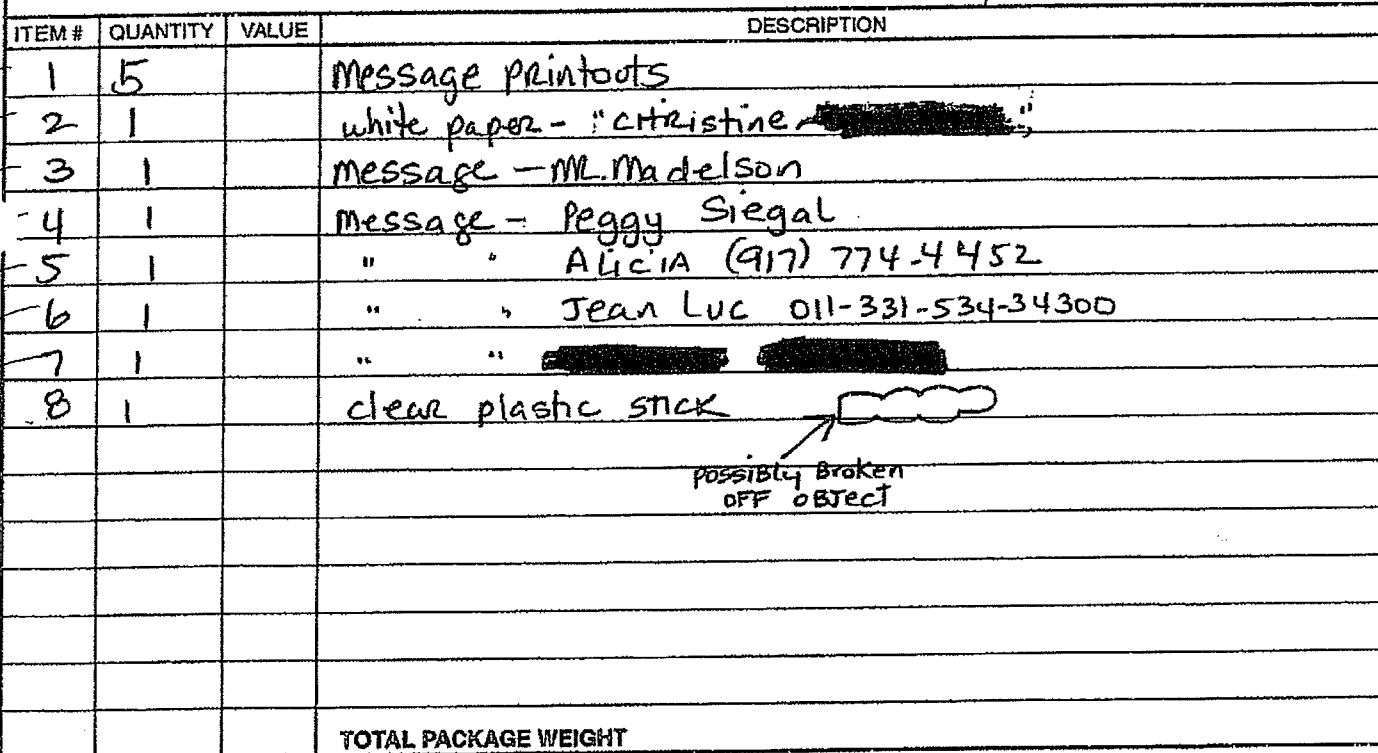 ITEM # QUANTITY VALUE DESCRIPTION
1 5 Message Printouts
2 1 white paper - "Christine "
3 1 message - Mr. Madelson
4 1 message - Peggy Siegal
5 1 " " Alicia (917) 774-4452
6 1 " " Jean Luc 011-331-534-34300
7 1 " "
8 1 clear plastic stick
Possibly Broken
OFF OBJect
TOTAL PACKAGE WEIGHT